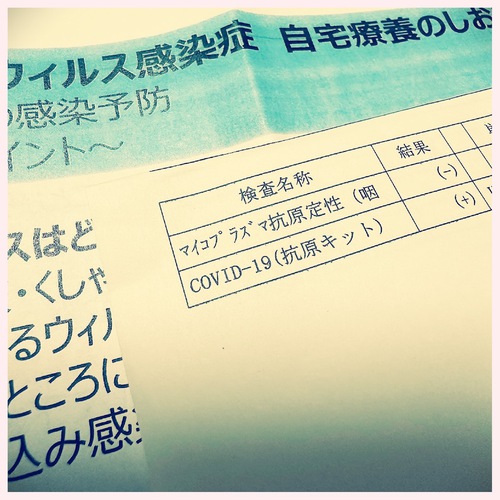 ウィルス感染症 自宅療養のしお
の感染予防
イント〜
検査名称 結果
マイコプラズマ抗原定性(咽 (-)
COVID-19(抗原キット) (+)
スはど
・くしゃ
るウィル
ところに
込み感染